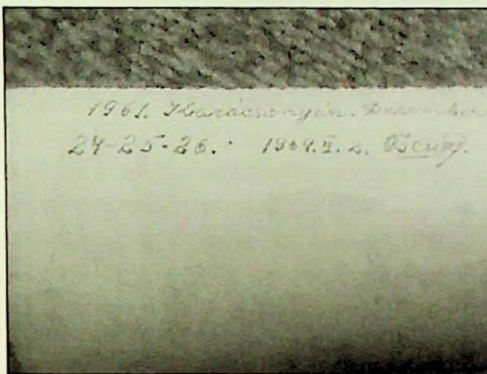 1961. Karácsonyán. December
24-25-26. 1964.II.2.